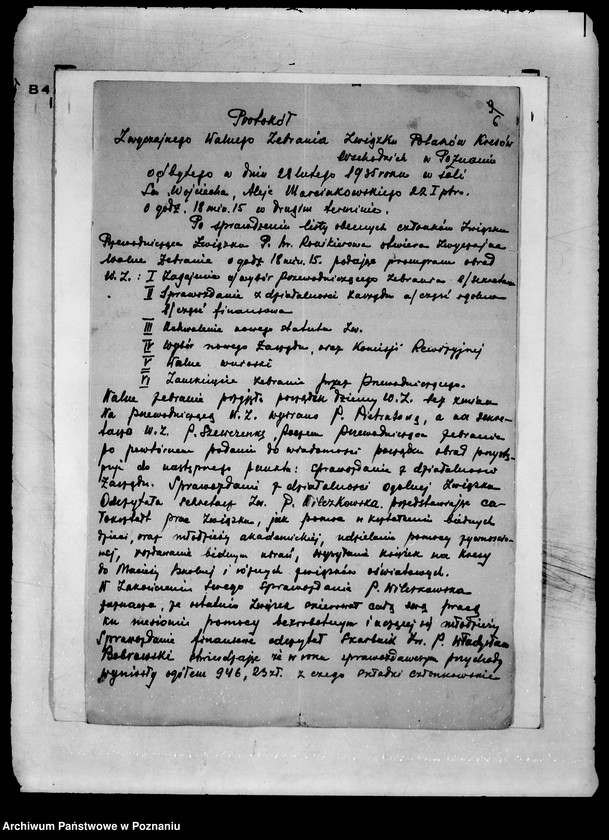 B4
6
Protokół
Zwyczajnego Walnego Zebrania Związku Polaków Kresów
Wschodnich w Poznaniu
odbytego w dniu 28 lutego 1935 roku w sali
Św. Wojciecha, Aleje Marcinkowskiego 22 I ptr.
o godz. 18 min. 15 w drugim terminie.
Po sprawdzeniu listy obecnych członków Związku
Przewodnicząca Związku P. hr. Ronikierowa otwiera Zwyczajne
Walne Zebranie o godz 18 min. 15. podając program obrad
W. Z. : I Zagajenie a/ wybór Przewodniczącego Zebrania b/ sekretarza
II Sprawozdanie z działalności Zarządu a/ część ogólna
b/ część finansowa
III Uchwalenie nowego statutu Zw.
IV Wybór nowego Zarządu, oraz Komisji Rewizyjnej
V Wolne wnioski
VI Zamknięcie zebrania przez Przewodniczącego.
Walne Zebranie przyjęło porządek dzienny W. Z. bez zmian
Na przewodniczącą W. Z. wybrano P. a na sekre-
tarza W. Z. P. Szewczenkę, Poczem Przewodnicząca Zebrania
po powtórnem podaniu do wiadomości porządku obrad przystę-
puje do następnego punktu: sprawozdanie z działalności
Zarządu. Sprawozdanie z działalności ogólnej Związku
Odczytała sekretarz Zw. P. Wilczkowska przedstawiając ca-
łokształt prac Związku, jak pomoc w kształceniu biednych
dzieci, oraz młodzieży akademickiej, udzielanie pomocy żywnościo-
wej, rozdawanie biednym ubrań, wysyłanie książek na kresy
do Macierzy Szkolnej i różnych związków oświatowych.
W Zakończeniu swego Sprawozdania P. Wilczkowska
zaznacza, że ostatnio Związek skierował całą swą pracę
ku niesieniu pomocy bezrobotnym i uczącej się młodzieży
Sprawozdanie finansowe odczytał Skarbnik Zw. P. Władysław
Bobrowski stwierdzając że w roku sprawozdawczym przychody
wyniosły ogółem 946,23 zł. z czego składki członkowskie
Archiwum Państwowe w Poznaniu